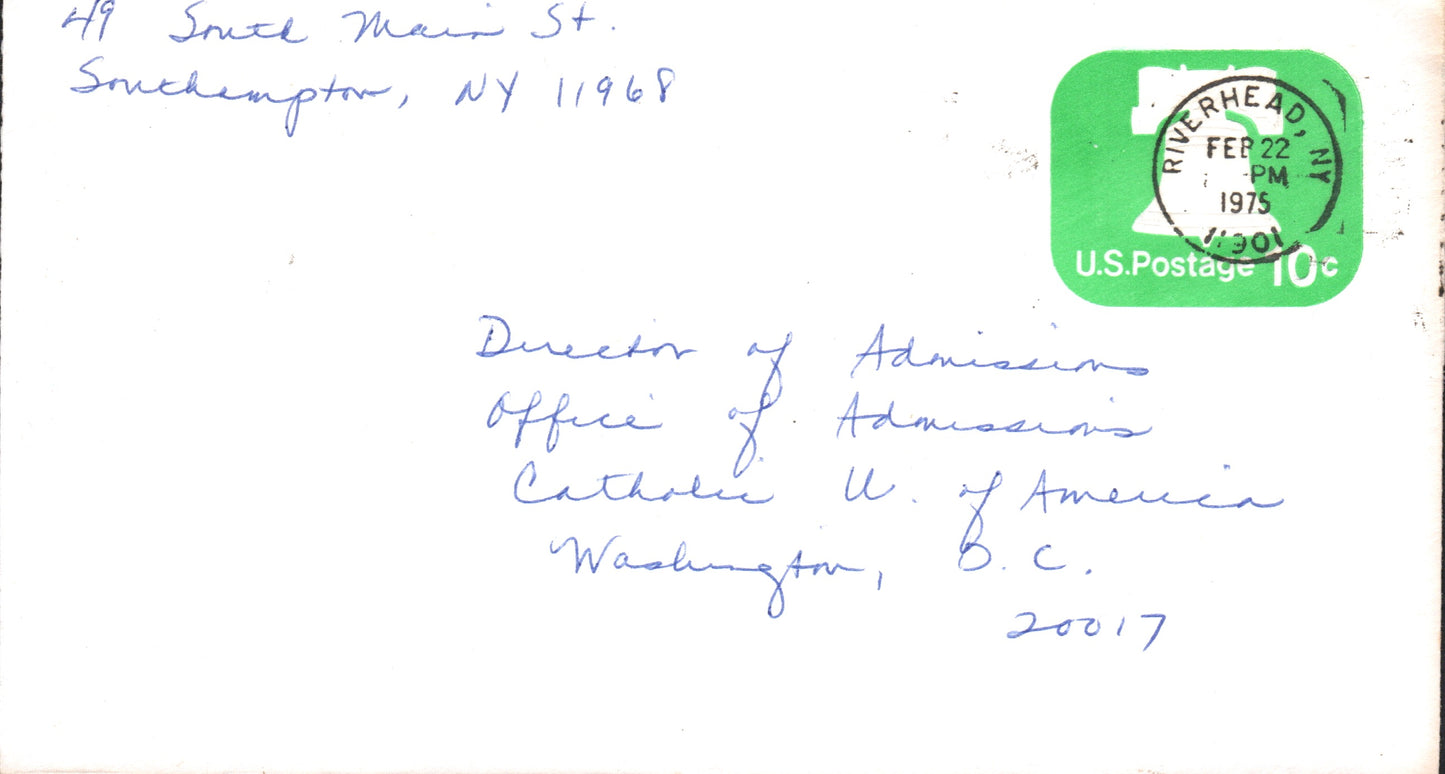 49 South Main St.
Southampton, NY 11968
RIVERHEAD, NY
FEB 22
PM
1975
11901
U.S. Postage 10c
Director of Admissions
Office of Admissions
Catholic U. of America
Washington, D.C.
20017